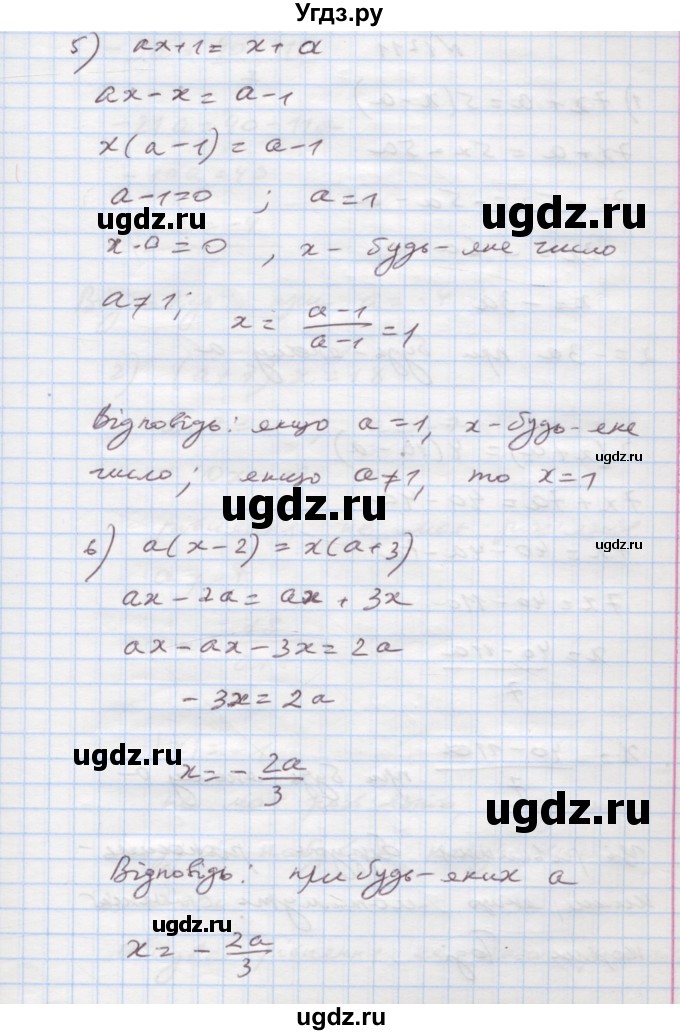 Угдз.ру
5) ax+1 = x+a
ax-x = a-1
x(a-1) = a-1
a-1=0 ; a=1
x·0=0, x- будь-яке число
a≠1; x = (a-1)/(a-1) = 1
Відповідь: якщо a=1, x-будь-яке
число; якщо a≠1, то x=1
6) a(x-2) = x(a+3)
ax-2a = ax+3x
ax-ax-3x = 2a
-3x = 2a
x = -2a/3
Відповідь: при будь-яких a
x = -2a/3
ugdz.ru
ugdz.ru
ugdz.ru
ugdz.ru
ugdz.ru
ugdz.ru
ugdz.ru
ugdz.ru
ugdz.ru
ugdz.ru
ugdz.ru